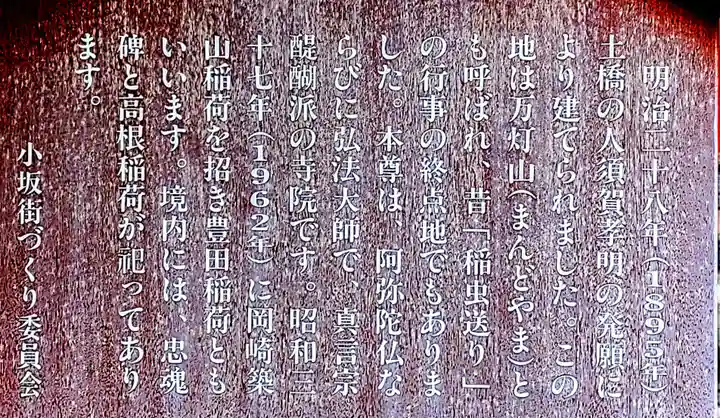 明治二十八年(1895年)、
土橋の人須賀孝明の発願に
より建てられました。この
地は万灯山(まんどやま)と
も呼ばれ、昔「稲虫送り」
の行事の終点地でもありま
した。本尊は、阿弥陀仏な
らびに弘法大師で、真言宗
醍醐派の寺院です。昭和三
十七年(1962年)に岡崎築
山稲荷を招き豊田稲荷とも
いいます。境内には、忠魂
碑と高根稲荷が祀ってあり
ます。
小坂街づくり委員会